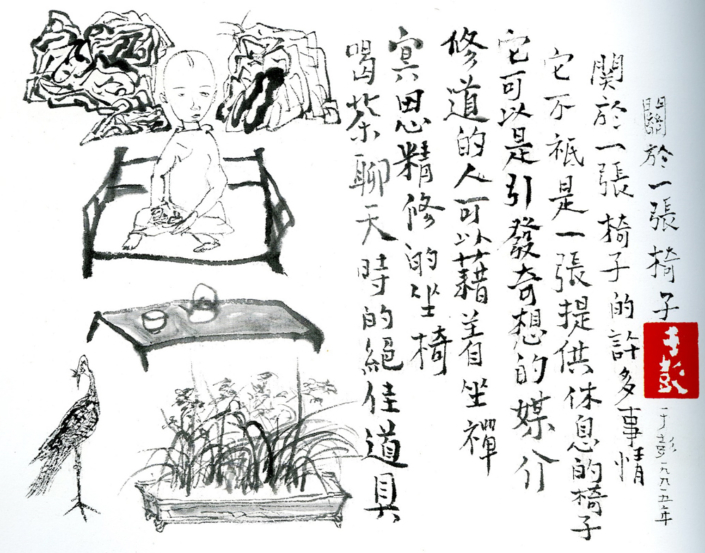 關於一張椅子
于彭
于彭一九九五年
関於一張椅子的許多事情
它不祇是一張提供休息的椅子
它可以是引發奇想的媒介
修道的人可以藉着坐禪
冥思精修的坐椅
喝茶聊天時的絕佳道具